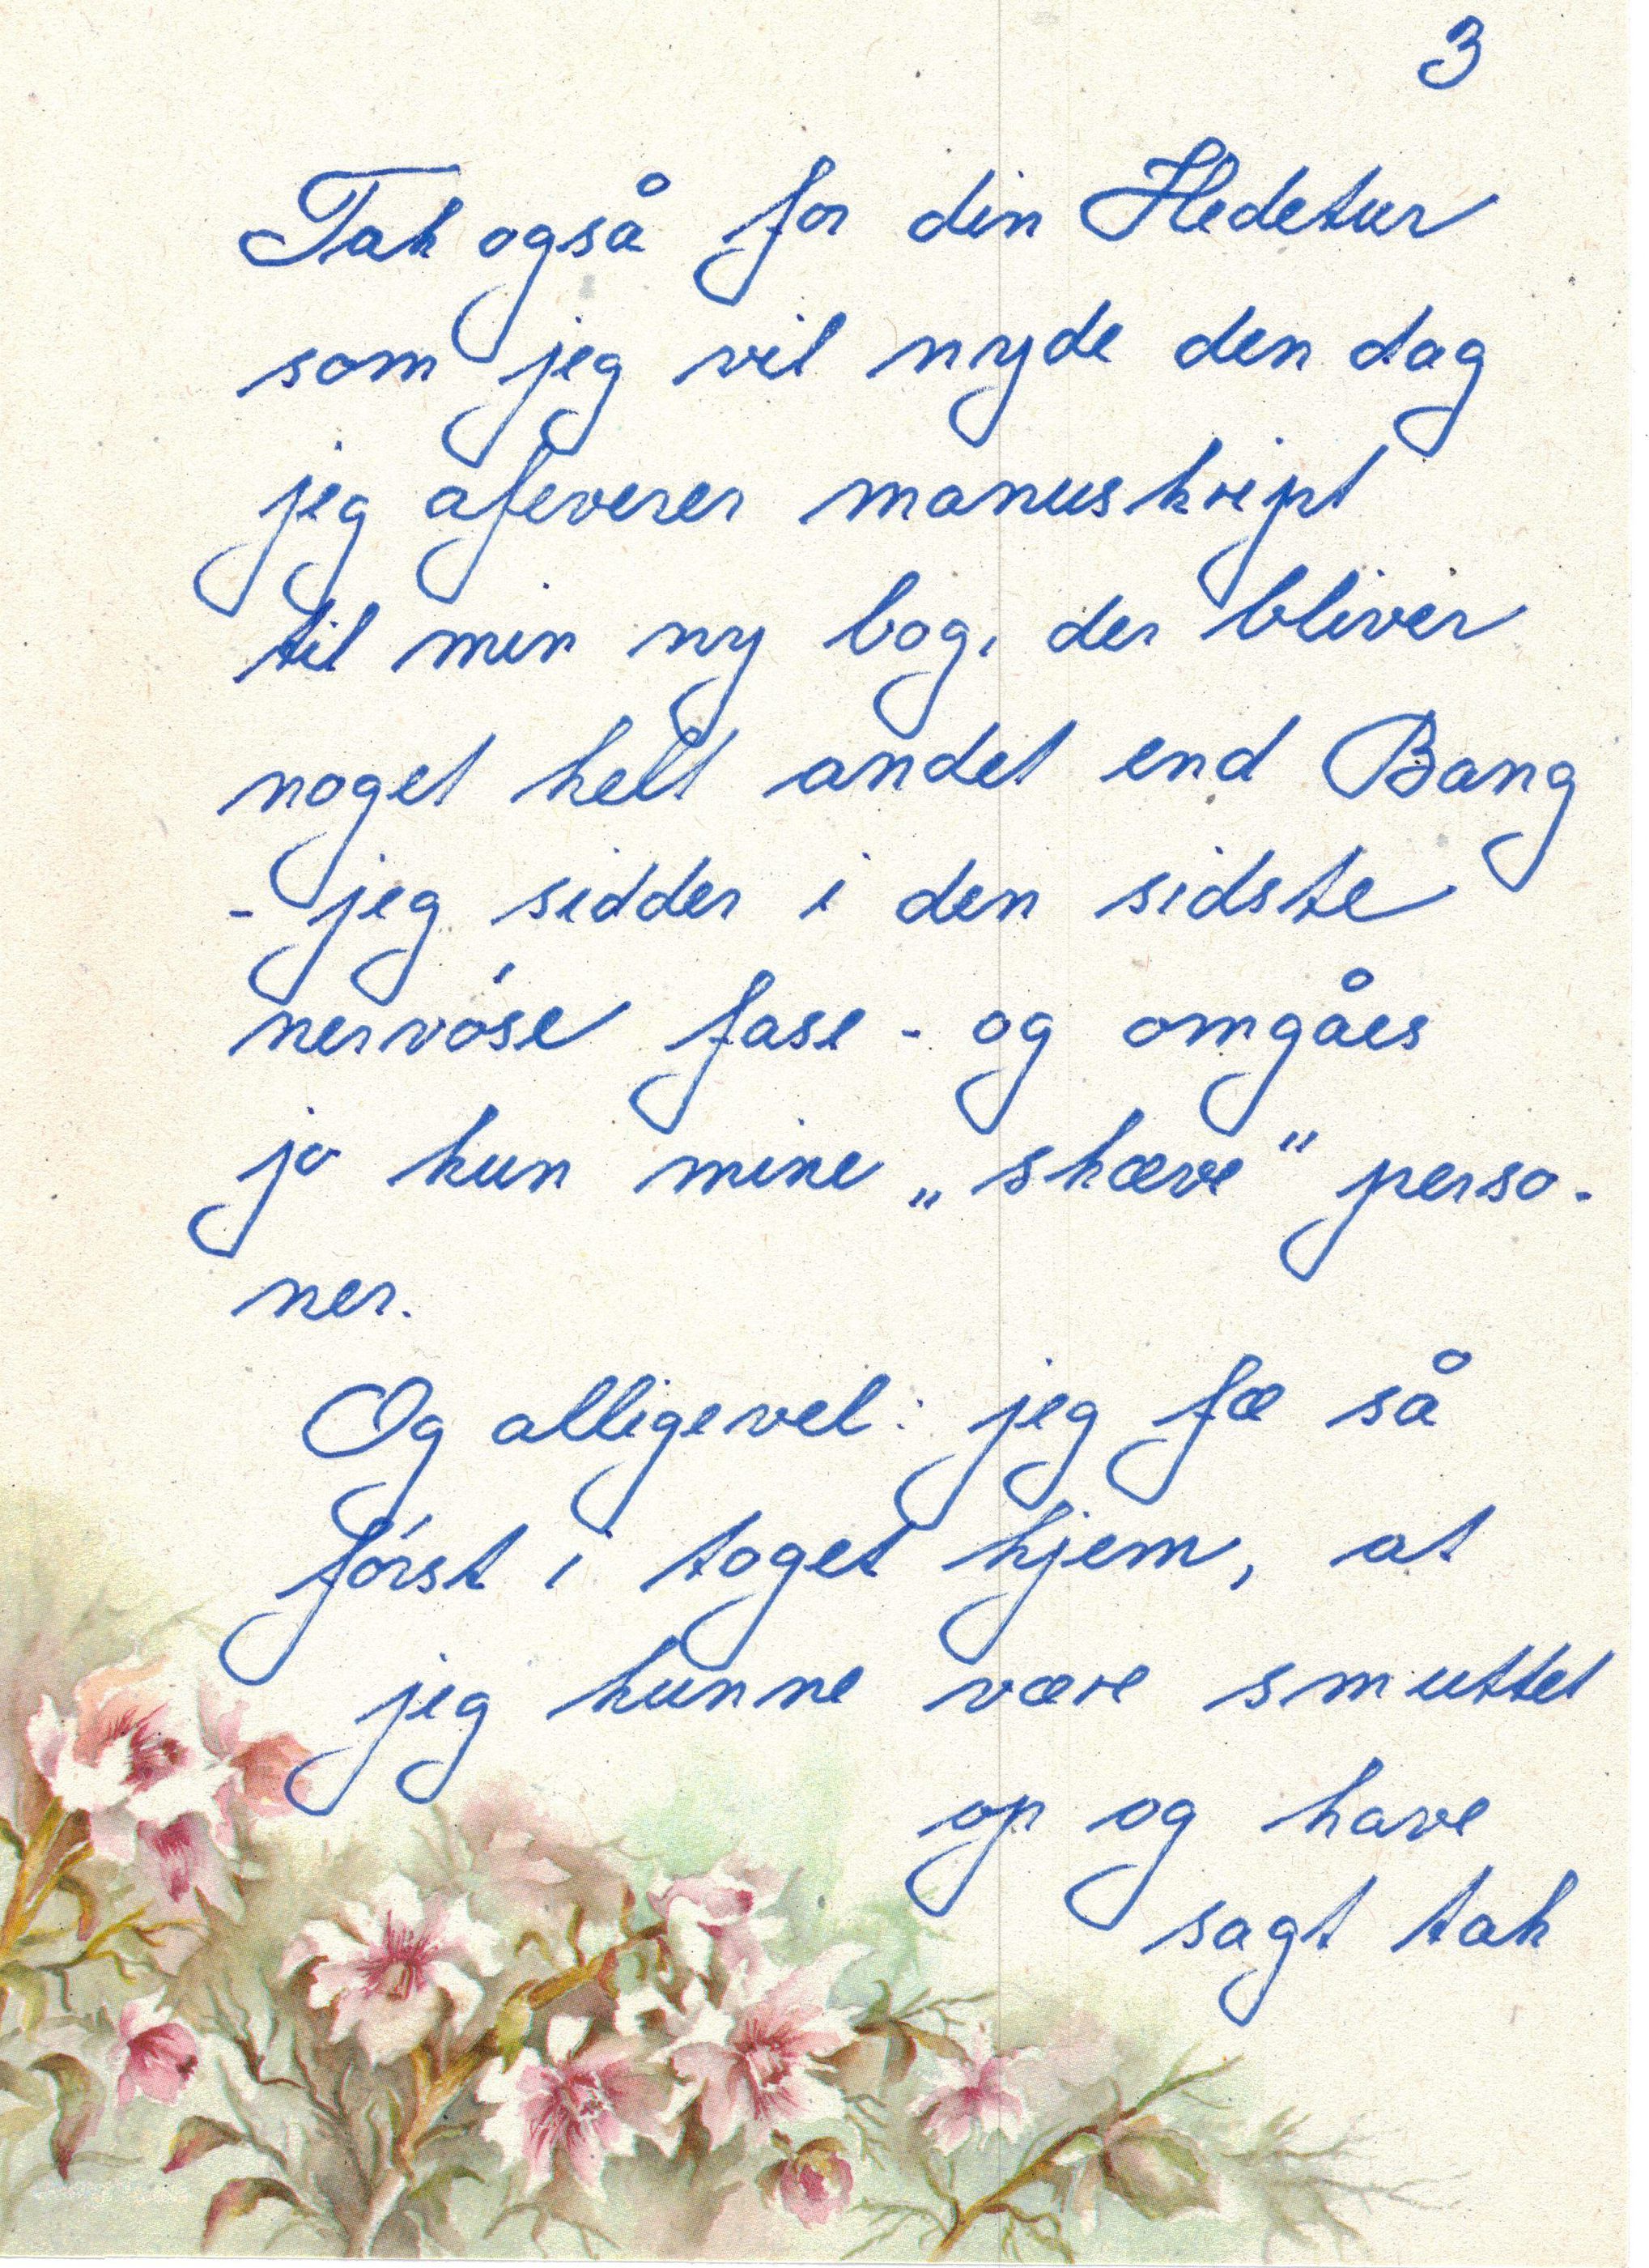 3
Tak også for din Hedetur
som jeg vil nyde den dag
jeg afeverer manuskript
til min ny bog, der bliver
noget helt andet end Bang
- jeg sidder i den sidste
nervóse fase - og omgåes
jo kun mine „skæve" perso-
ner.
Og alligevel: jeg fæ så
fórst i toget hjem, at
jeg kunne være smuttet
op og have
sagt tak